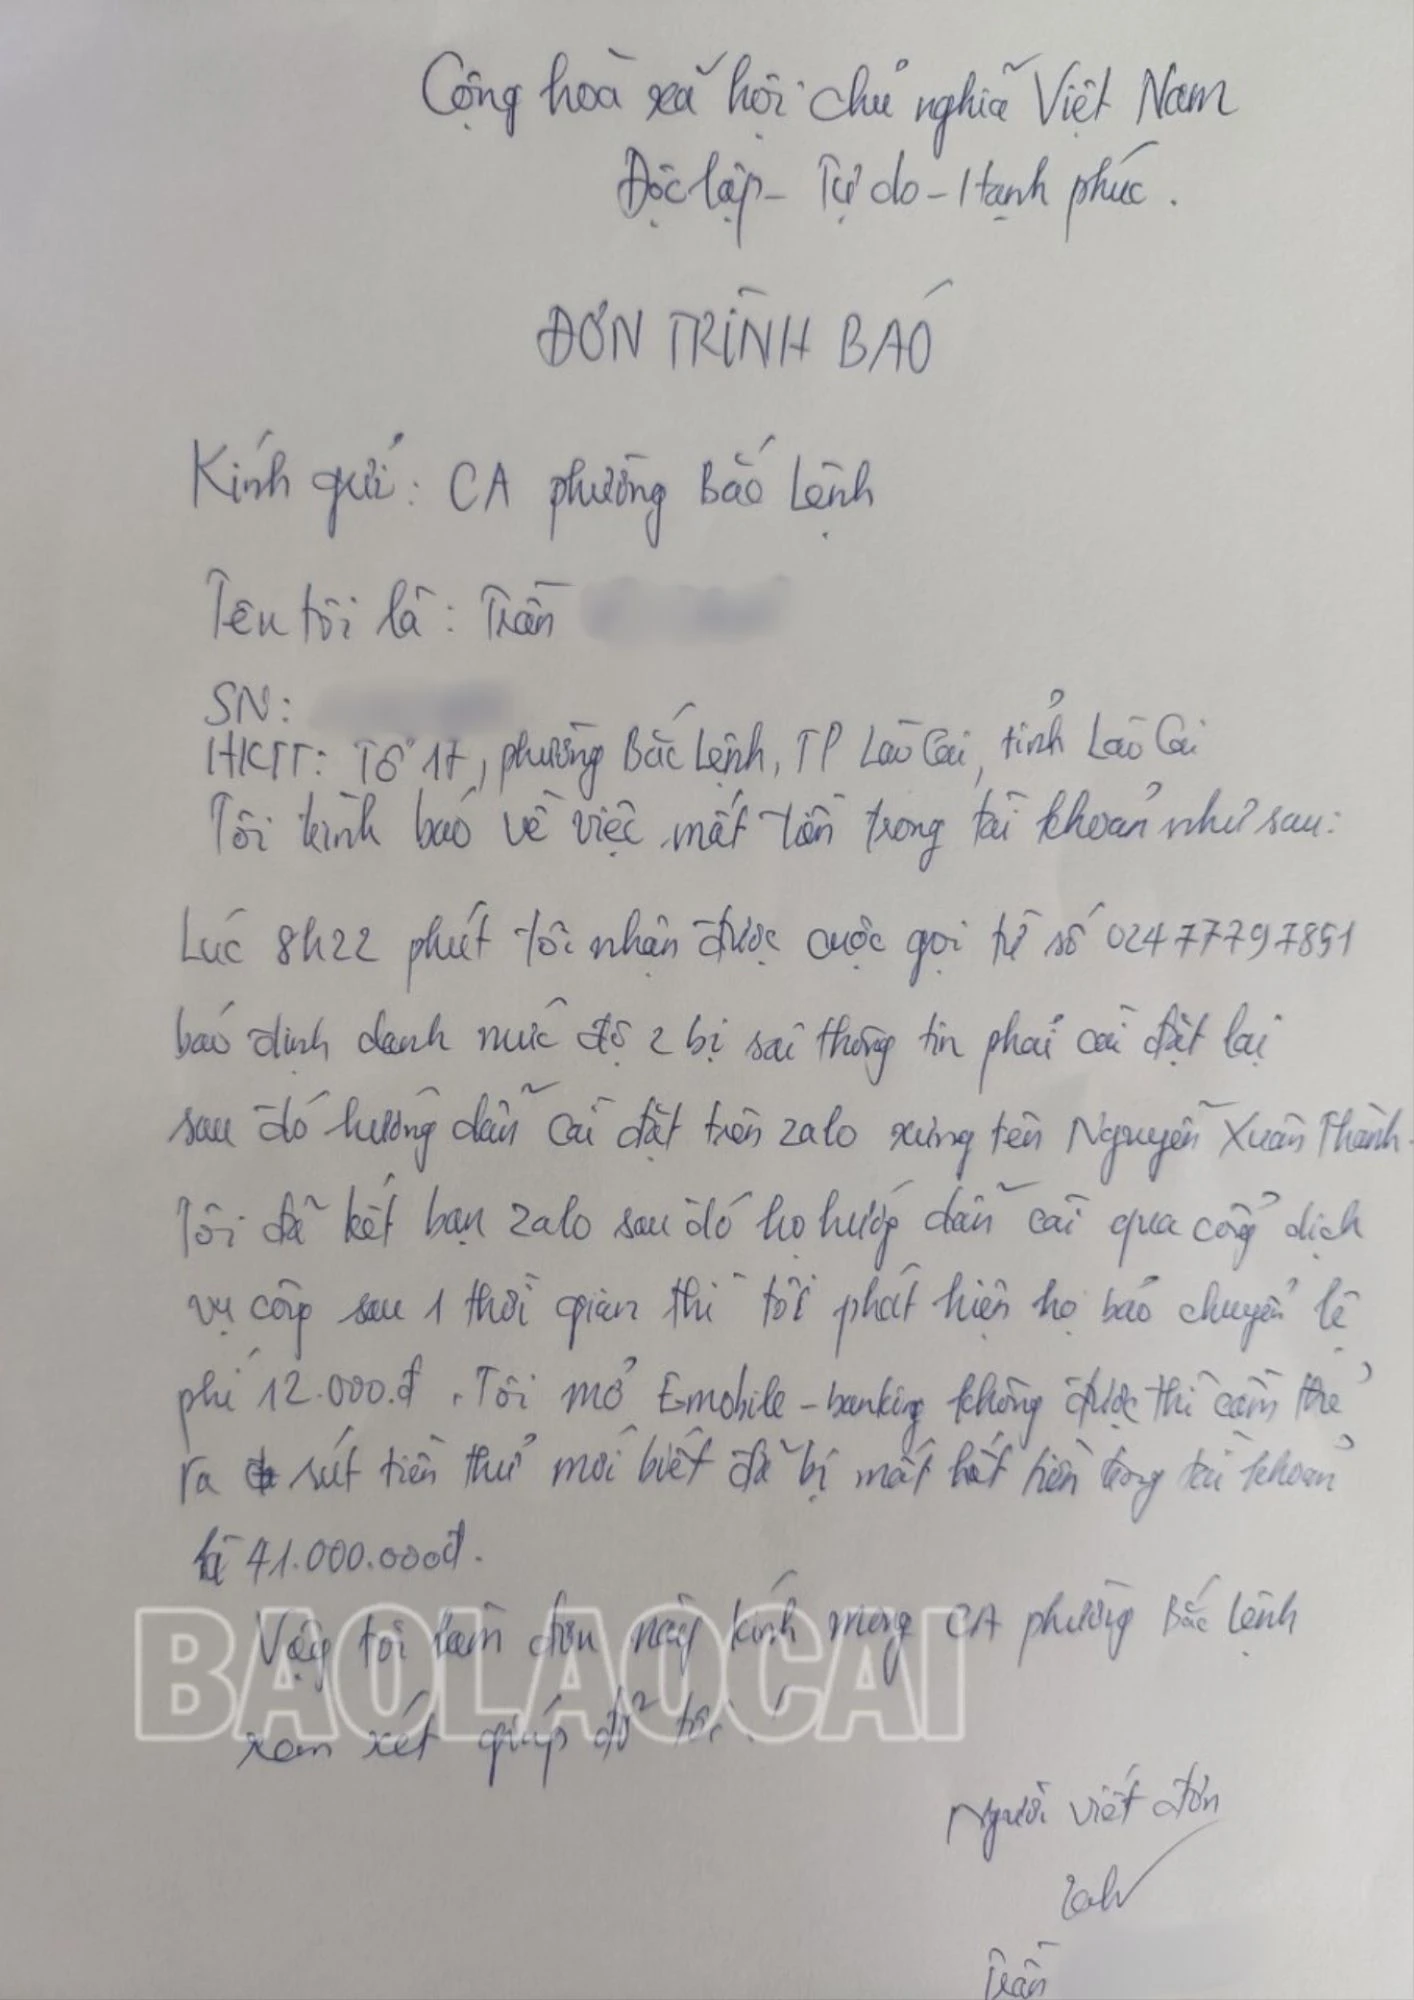 Cộng hoà xã hội chủ nghĩa Việt Nam
Độc lập - Tự do - Hạnh phúc.
ĐƠN TRÌNH BÁO
Kính gửi: CA phường Bắc Lệnh
Tên tôi là: Trần
SN:
HKTT: Tổ 17, phường Bắc Lệnh, TP Lào Cai, tỉnh Lào Cai
Tôi trình báo về việc mất tiền trong tài khoản như sau:
Lúc 8h22 phút tôi nhận được cuộc gọi từ số 02477797851
báo định danh mức độ 2 bị sai thông tin phải cài đặt lại
sau đó hướng dẫn cài đặt trên zalo xưng tên Nguyễn Xuân Thành.
Tôi đã kết bạn zalo sau đó họ hướng dẫn cài qua cổng dịch
vụ công sau 1 thời gian thì tôi phát hiện họ báo chuyển lệ
phí 12.000.đ. Tôi mở Emobile-banking không được thì cầm thẻ
ra rút tiền thử mới biết đã bị mất hết tiền trong tài khoản
là 41.000.000đ.
Vậy tôi làm đơn này kính mong CA phường Bắc Lệnh
xem xét giúp đỡ tôi.!
BAOLAOCAI
Người viết đơn
Trần